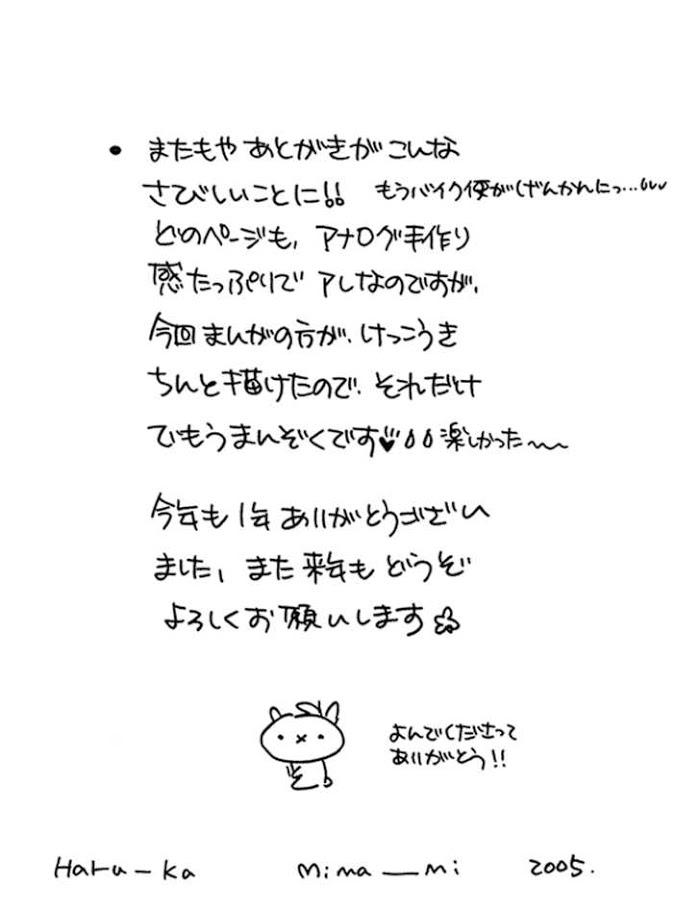 • またもや あとがきが こんな
さびしいことに!! もうバイク便がげんかんにっ…
どのページも、アナログ手作り
感たっぷりで アレなのですが、
今回まんがの方が、けっこうき
ちんと描けたので、それだけ
でもうまんぞくです♥ 楽しかった〜〜
今年も1年ありがとうござい
ました、また来年もどうぞ
よろしくお願いします
よんでくださって
ありがとう!!
そ
Haru-ka Mima_mi 2005.